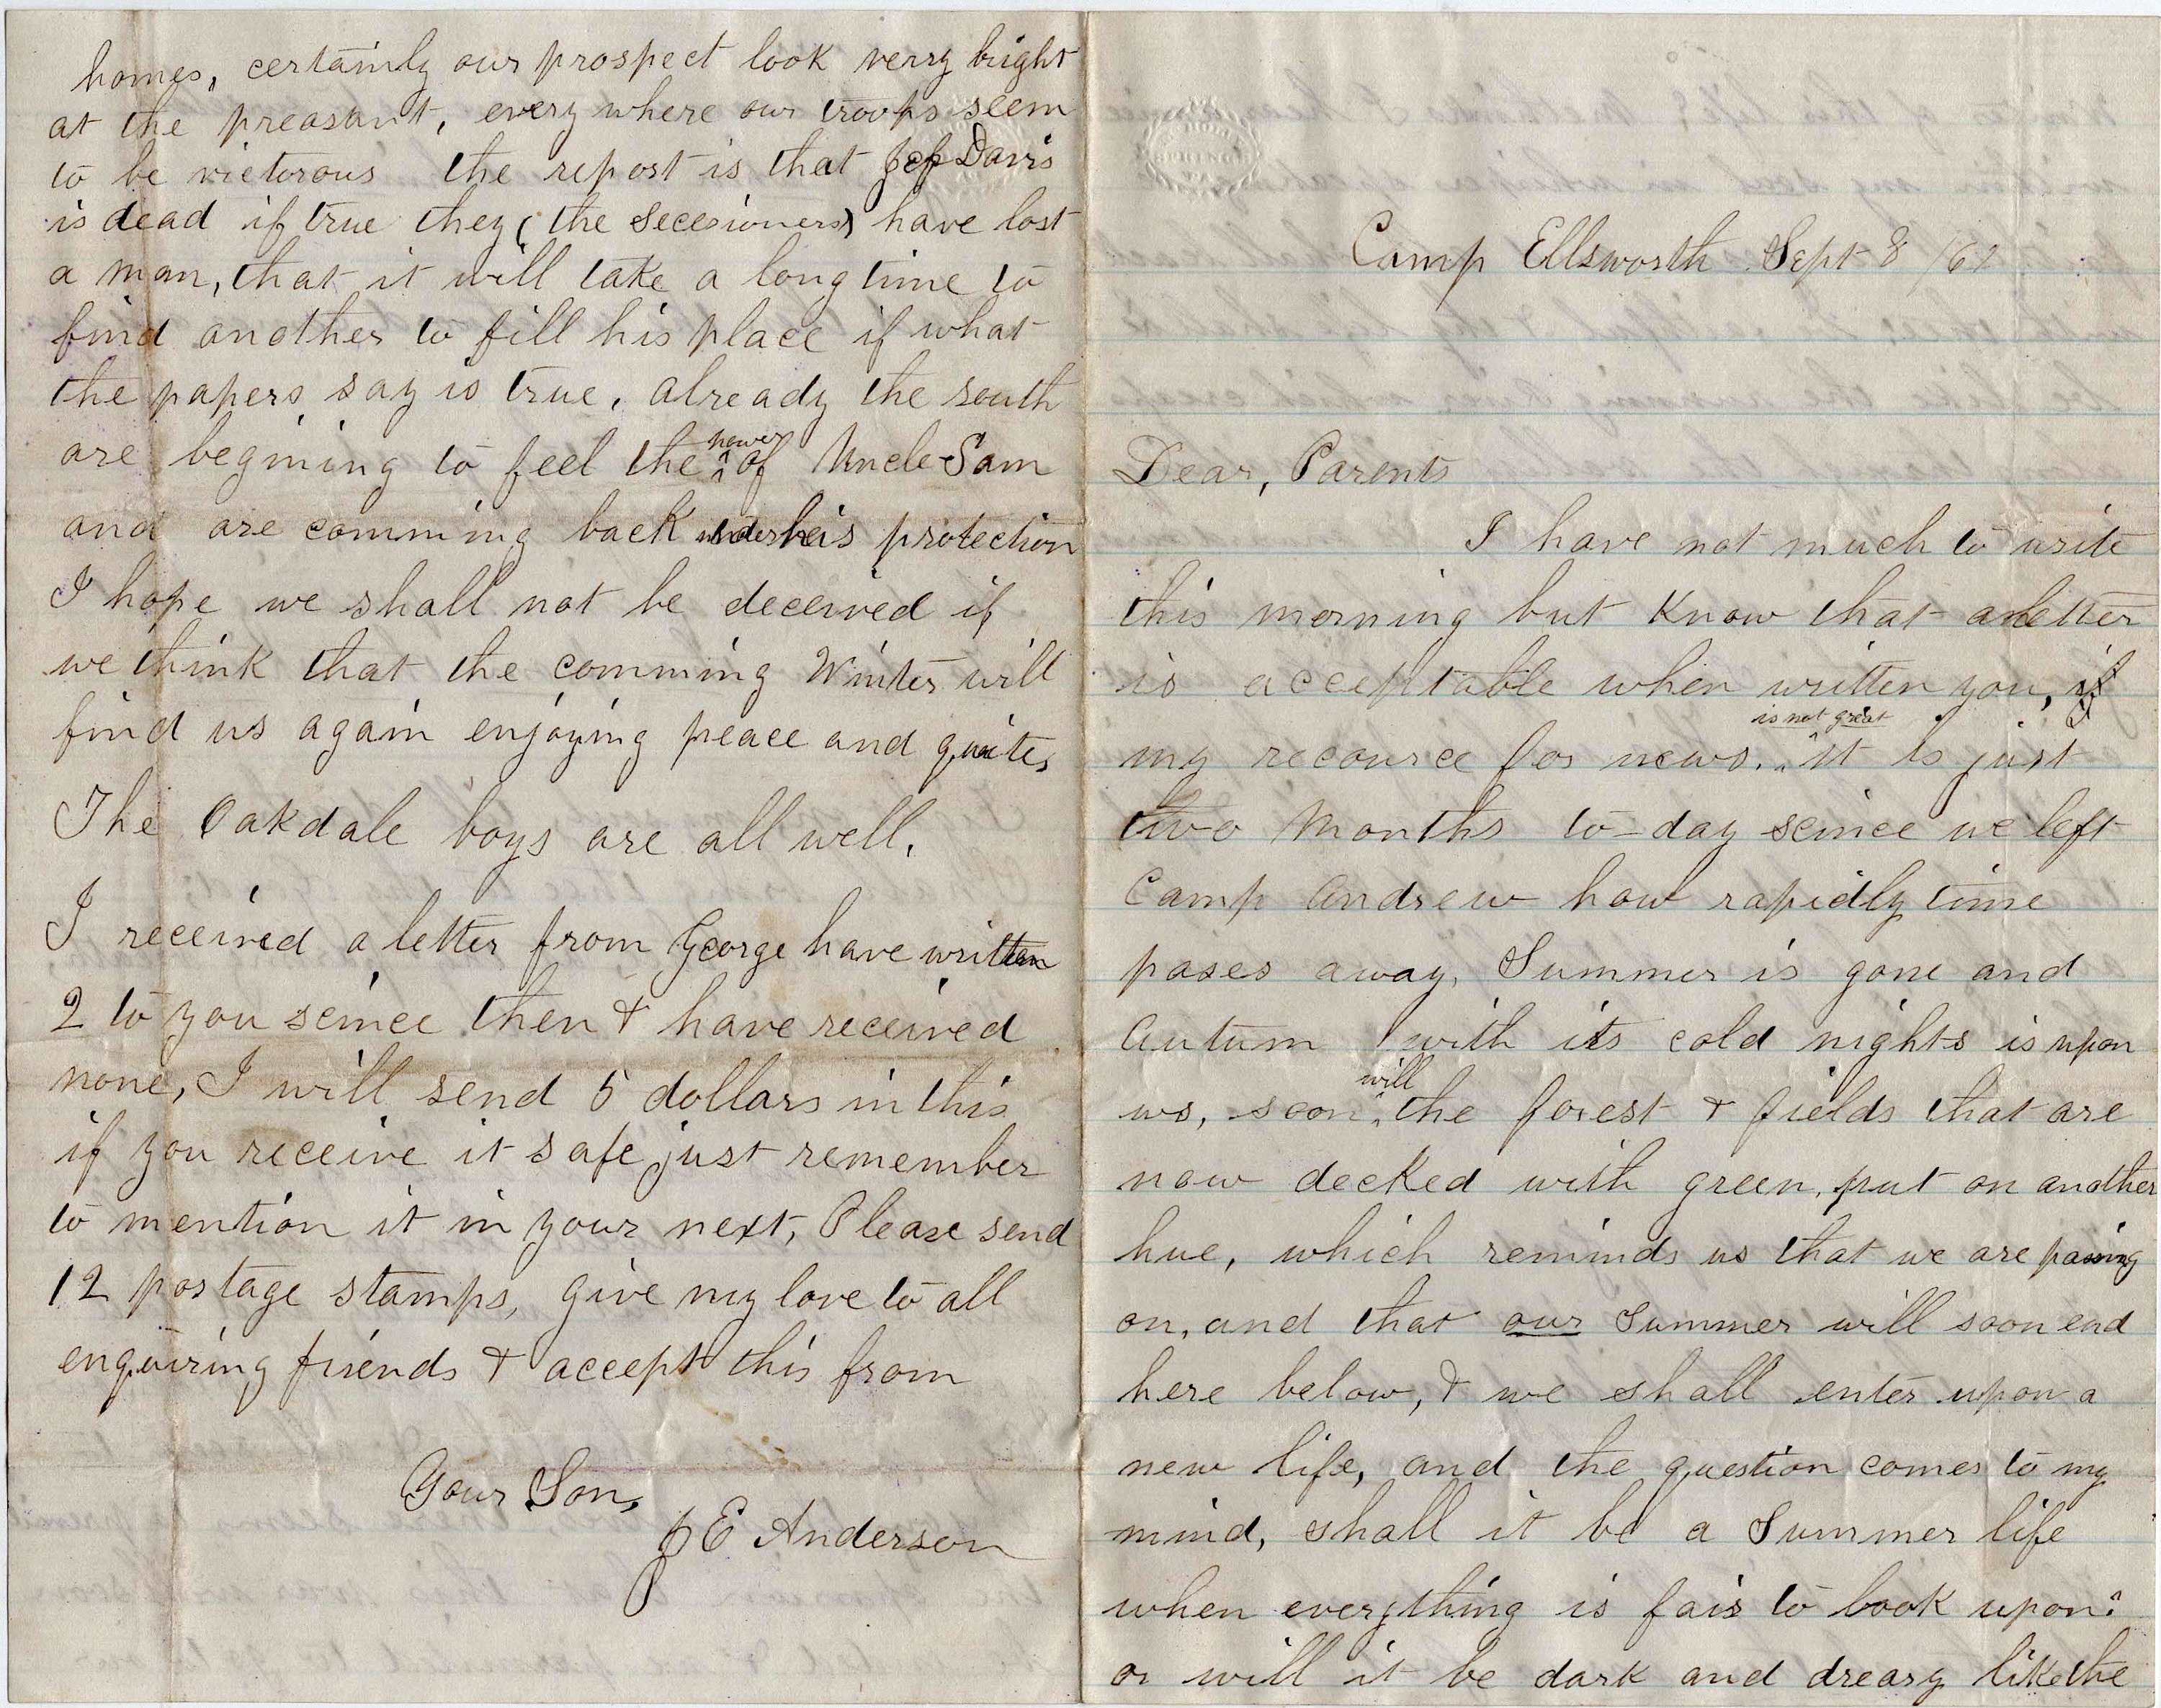 Camp Ellsworth Sept 8 /61
Dear, Parents
I have not much to write
this morning but know that a letter
is acceptable when written you, if
is not great
my recource for news. it is just
two Months to-day seince we left
Camp Andrew how rapidly time
pases away. Summer is gone and
Autum with its cold nights is upon
will
us, soon the forest & fields that are
now decked with green, put on another
hue, which reminds us that we are passing
on, and that our Summer will soon end
here below, & we shall enter upon a
new life, and the question comes to my
mind, shall it be a Summer life
when everything is fair to look upon?
or will it be dark and dreary like the
homes, certainly our prospect look verry bright
at the preasant, every where our troops seem
to be victorous the report is that Jef Davis
is dead if true they (the Secesioners) have lost
a man, that it will take a long time to
find another to fill his place if what
the papers say is true, already the south
power
are begining to feel the of Uncle Sam
and are comming back under his protection
I hope we shall not be deceived if
we think that the comming Winter will
find us again enjoying peace and quite,
The Oakdale boys are all well.
I received a letter from George have written
2 to you seince then & have received
none, I will send 5 dollars in this
if you receive it safe just remember
to mention it in your next, Please send
12 postage stamps, give my love to all
enquiring friends & accept this from
Your Son,
J E Anderson